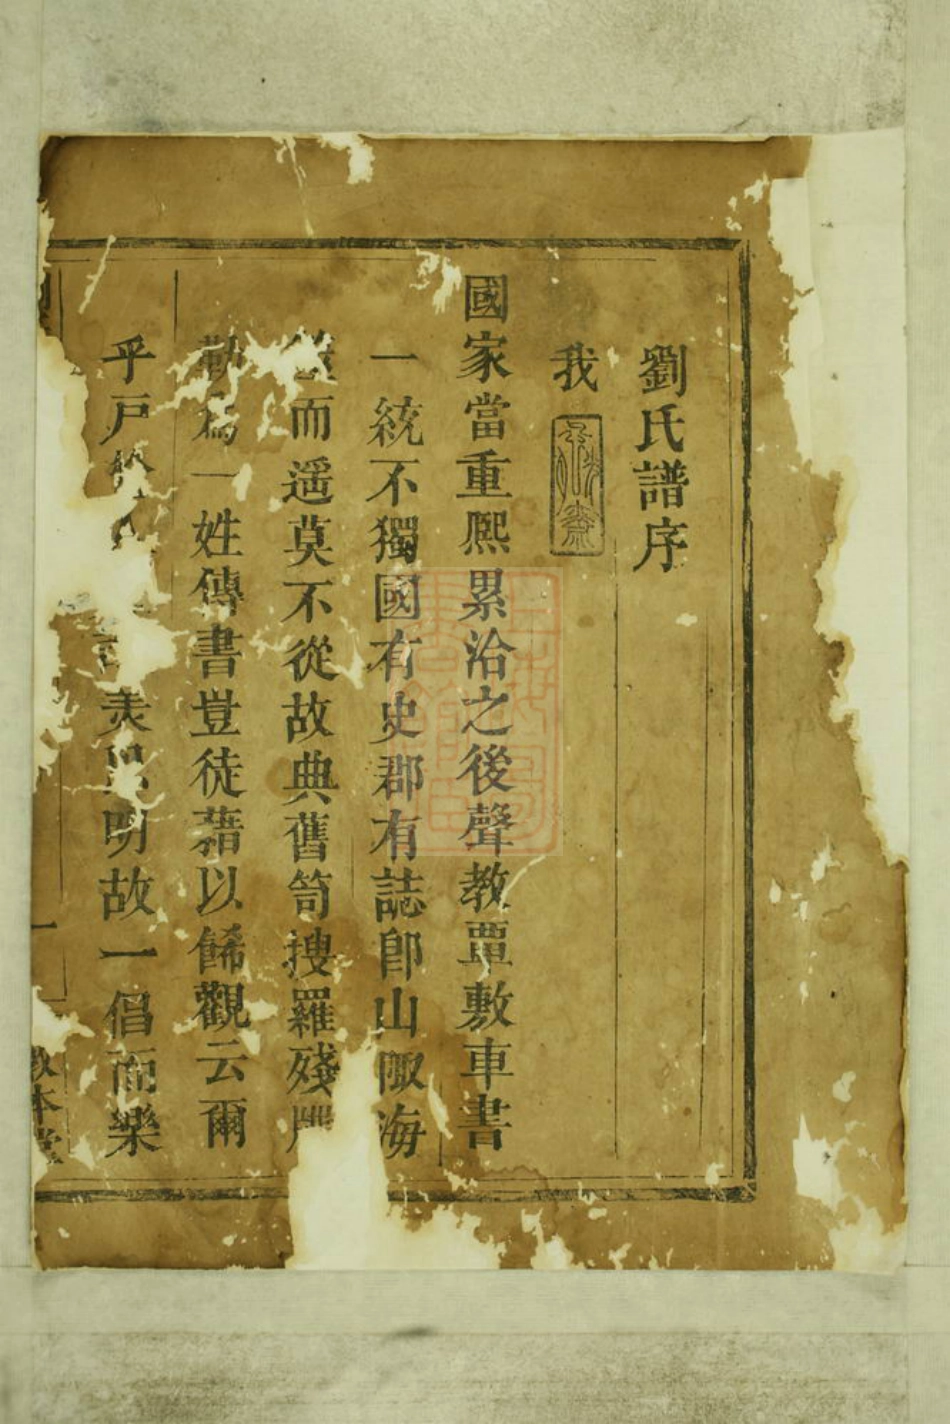 劉氏譜序
我
國家當重熙累洽之後聲教覃敷車書
一統不獨國有史郡有誌卽山陬海
而遥莫不從故典舊笥搜羅殘
勒爲一姓傳書豈徒藉以餙觀云爾
乎戸明故一倡而樂
一
敦本堂